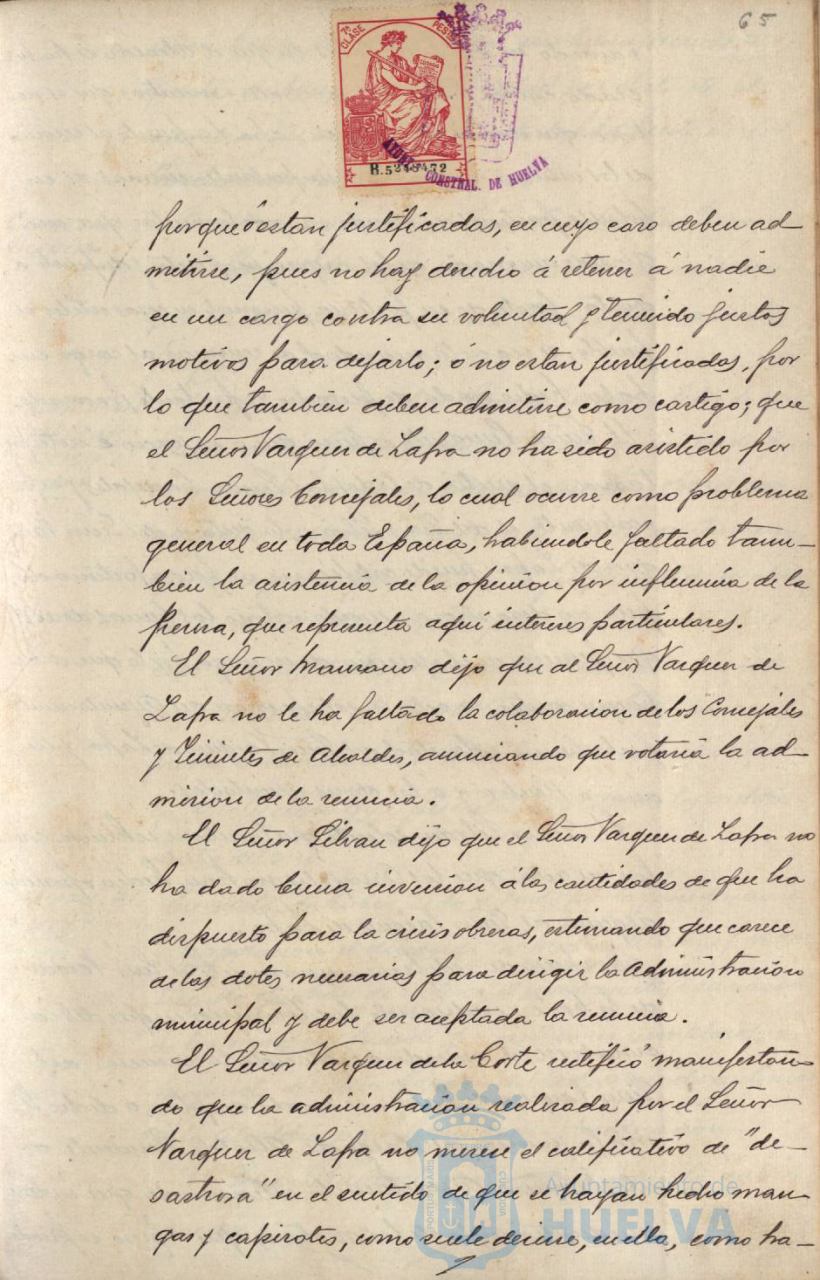 65
7ª CLASE
PESETAS
B.5248472
AYUNTº CONSTNAL. DE HUELVA
porque ó estan justificadas, en cuyo caso deben ad-
mitirse, pues no hay derecho á retener á nadie
en un cargo contra su voluntad y teniendo justos
motivos para dejarlo; ó no estan justificadas, por
lo que tambien deben admitirse como castigo; que
el Señor Vazquez de Zafra no ha sido asistido por
los Señores Concejales, lo cual ocurre como problema
general en toda España, habiendole faltado tam-
bien la asistencia de la opinion por influencia de la
Prensa, que representa aquí intereses particulares.
El Señor Manzano dijo que al Señor Vazquez de
Zafra no le ha faltado la colaboracion de los Concejales
y Tenientes de Alcaldes, anunciando que votaria la ad-
mision de la renuncia.
El Señor Silvan dijo que el Señor Vazquez de Zafra no
ha dado buena inversion á las cantidades de que ha
dispuesto para la crisis obreras, estimando que carece
de las dotes necesarias para dirigir la Administracion
municipal y debe ser aceptada la renuncia.
El Señor Vazquez de la Corte rectificó manifestan-
do que la administracion realizada por el Señor
Vazquez de Zafra no merece el calificativo de "de-
sastrosa" en el sentido de que se hayan hecho man-
gas y capirotes, como suele decirse, en ella, como ha-
Ayuntamiento de
HUELVA